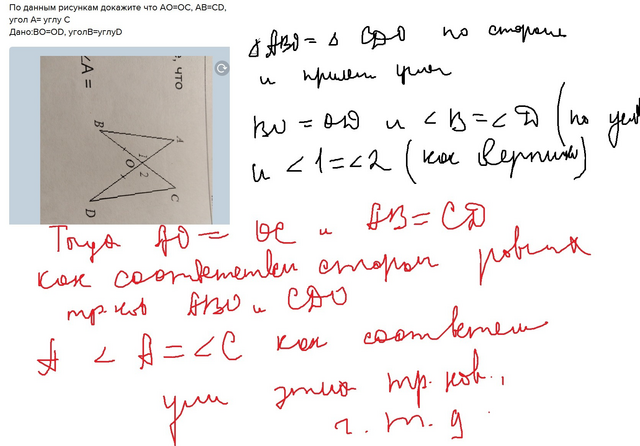 По данным рисункам докажите что AO=OC, AB=CD,
угол A= углу C
Дано:BO=OD, уголB=углуD
, что
∠A =
B
A
1
O
2
C
D
Δ ABO = Δ CDO по стороне
и прилеж углам
BO = OD и < B = < D (по усл
и < 1 = < 2 (как вертик)
Тогда AO = OC и AB = CD
как соответствен сторон равных
тр.ков ABO и CDO
А < A = < C как соответствен
углы этих тр. ков.,
ч. т. д.